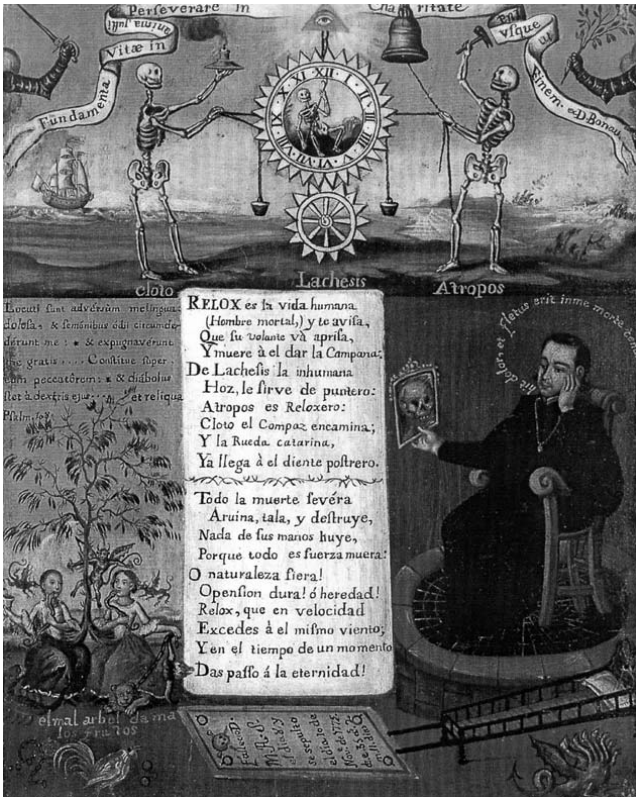 Perseverare in Charitate
anima justi
Vitæ in
Fundamenta
usque
in
Finem. D. Bonav.
XII I
cloto
Lachesis
Atropos
Locuti sunt adversum me lingua
dolosa, & sermonibus odii circumde-
derunt me: & expugnaverunt
me gratis .... Constitue super
eum peccatorem: & diabolus
stet à dextris ejus .... et reliqua
Psalm. 108
RELOX és la vida humana
(Hombre mortal,) y te avisa,
Que su volante vá aprisa,
Y muere à el dar la Campana:
De Lachesis la inhumana
Hoz, le sirve de puntero:
Atropos es Reloxero:
Cloto el Compaz encamina;
Y la Rueda catarina,
Ya llega à el diente postrero.
Todo la muerte sevéra
Aruina, tala, y destruye,
Nada de sus manos huye,
Porque todo es fuerza muera:
O naturaleza fiera!
O pension dura! ó heredad!
Relox, que en velocidad
Excedes à el mismo viento;
Y en el tiempo de un momento
Das passo á la eternidad!
dolor, et fletus erit in me morte
el mal arbol da ma
los frutos